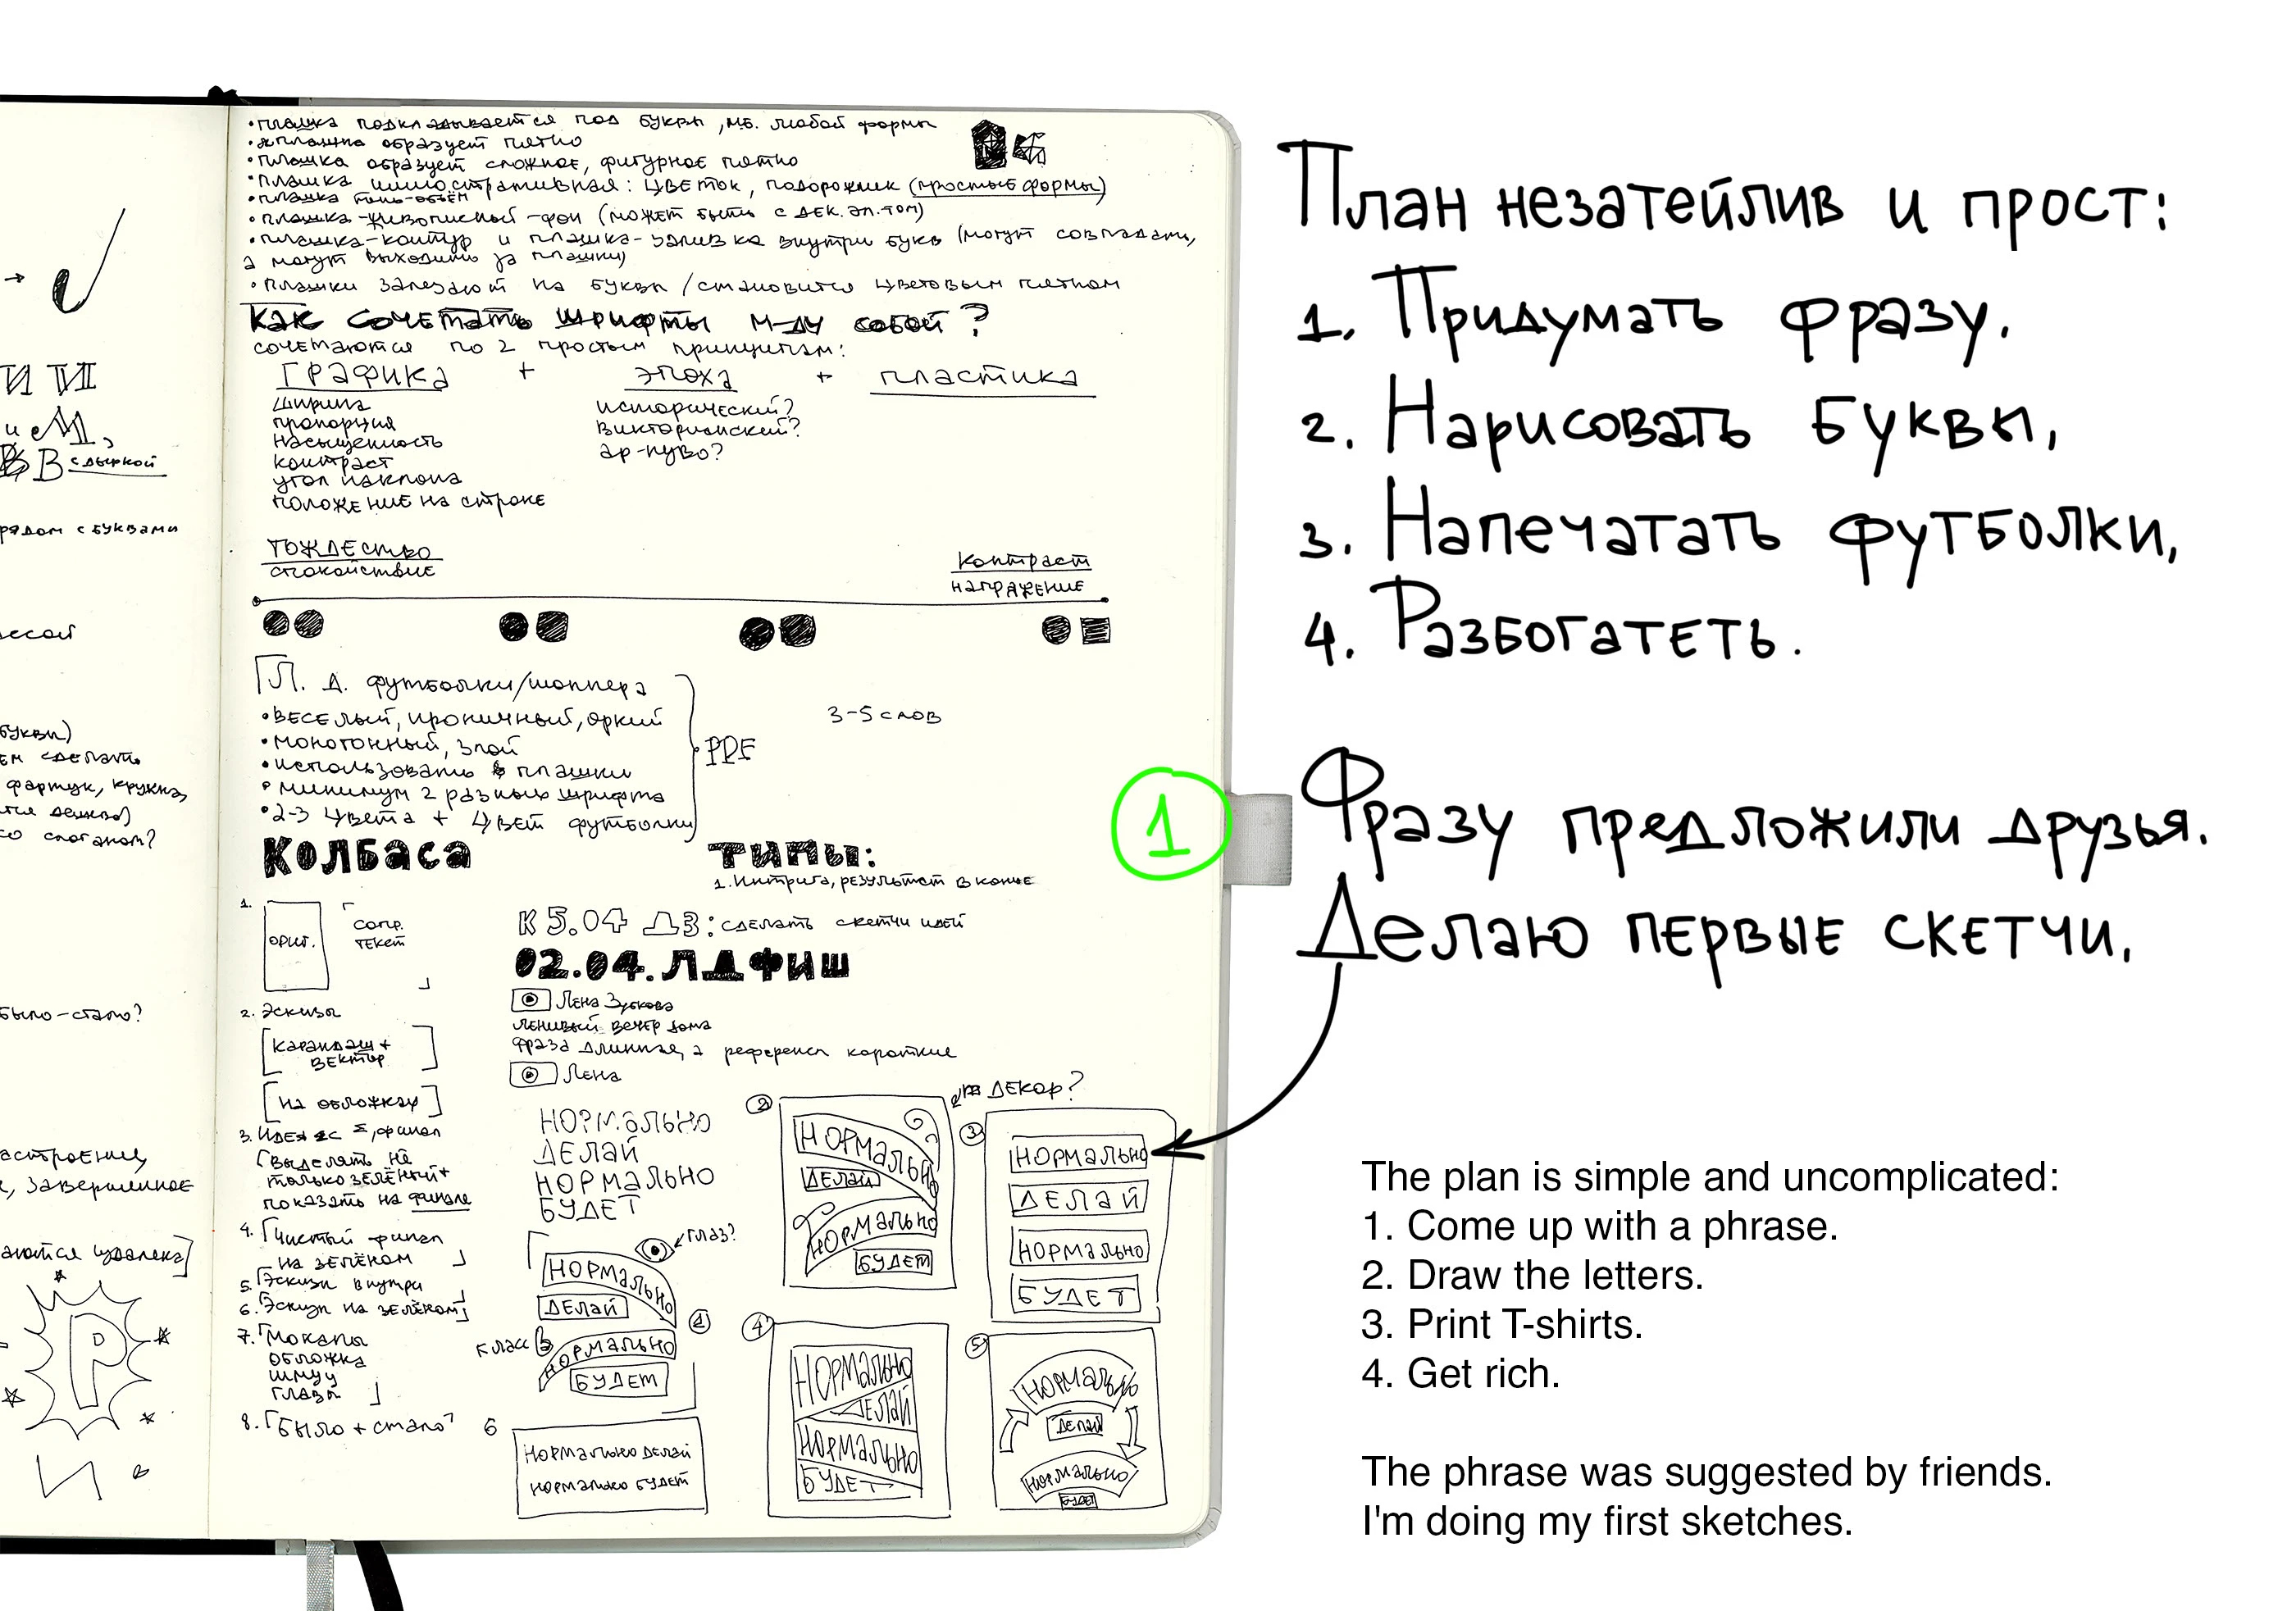 • плашка подкладывается под буквы, мб. любой формы
• плашка образует пятно
• плашка образует сложное, фигурное пятно
• плашка иллюстративная: цветок, подорожник (простые формы)
• плашка тень-объём
• плашка-живописный-фон (может быть с дек. эл. том)
• плашка-контур и плашка-заливка внутри букв (могут совпадать,
а могут выходить за плашки)
• плашки залезают на буквы / становится цветовым пятном
Как сочетать шрифты м-ду собой?
сочетаются по 2 простым принципам:
Графика + эпоха + пластика
ширина
пропорция
насыщенность
контраст
угол наклона
положение на строке
исторический?
викторианский?
ар-нуво?
тождество
спокойствие
контраст
напряжение
Л. Д. футболки/шоппера
• веселый, ироничный, яркий
• монотонный, злой
• использовать плашки
• минимум 2 разных шрифта
• 2-3 цвета + цвет футболки
PDF
3-5 слов
Колбаса
1.
ориг.
сопр.
текст
2. Эскизы
карандаш +
вектор
на обложках
3. Идея
выделять не
только зелёный +
показать на финале
4. Чистый финал
на зелёном
5. Эскизы внутри
6. Эскиз на зелёном
7. Мокапы
обложка
шмуц
глазы
8. Было + стало
типы:
1. Интрига, результат в конце
К 5.04 ДЗ: сделать скетчи идей
02.04. ЛД ФИШ
Лена Зубкова
ленивый вечер дома
фраза длинная, а референсы короткие
Лена
НОРМАЛЬНО
ДЕЛАЙ
НОРМАЛЬНО
БУДЕТ
глаз?
НОРМАЛЬНО
ДЕЛАЙ
НОРМАЛЬНО
БУДЕТ
класс
1
2
НОРМАЛЬНО
ДЕЛАЙ
НОРМАЛЬНО
БУДЕТ
декор?
3
НОРМАЛЬНО
ДЕЛАЙ
НОРМАЛЬНО
БУДЕТ
4
НОРМАЛЬНО
ДЕЛАЙ
НОРМАЛЬНО
БУДЕТ
5
НОРМАЛЬНО
ДЕЛАЙ
НОРМАЛЬНО
БУДЕТ
6
НОРМАЛЬНО ДЕЛАЙ
НОРМАЛЬНО БУДЕТ
и М,
В с дыркой
рядом с буквами
буквы)
ем сделать
фартук, кружка,
со слоганом?
было-стало?
астроение,
завершенное
аются издалека]
Р
И
1
План незатейлив и прост:
1. Придумать фразу.
2. Нарисовать буквы,
3. Напечатать футболки,
4. Разбогатеть.
Фразу предложили друзья.
Делаю первые скетчи.
The plan is simple and uncomplicated:
1. Come up with a phrase.
2. Draw the letters.
3. Print T-shirts.
4. Get rich.
The phrase was suggested by friends.
I'm doing my first sketches.